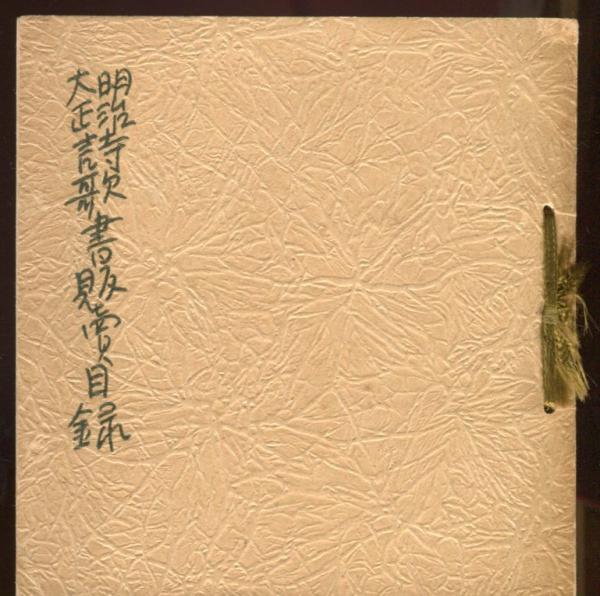 明治
大正
詩歌書販賣目録